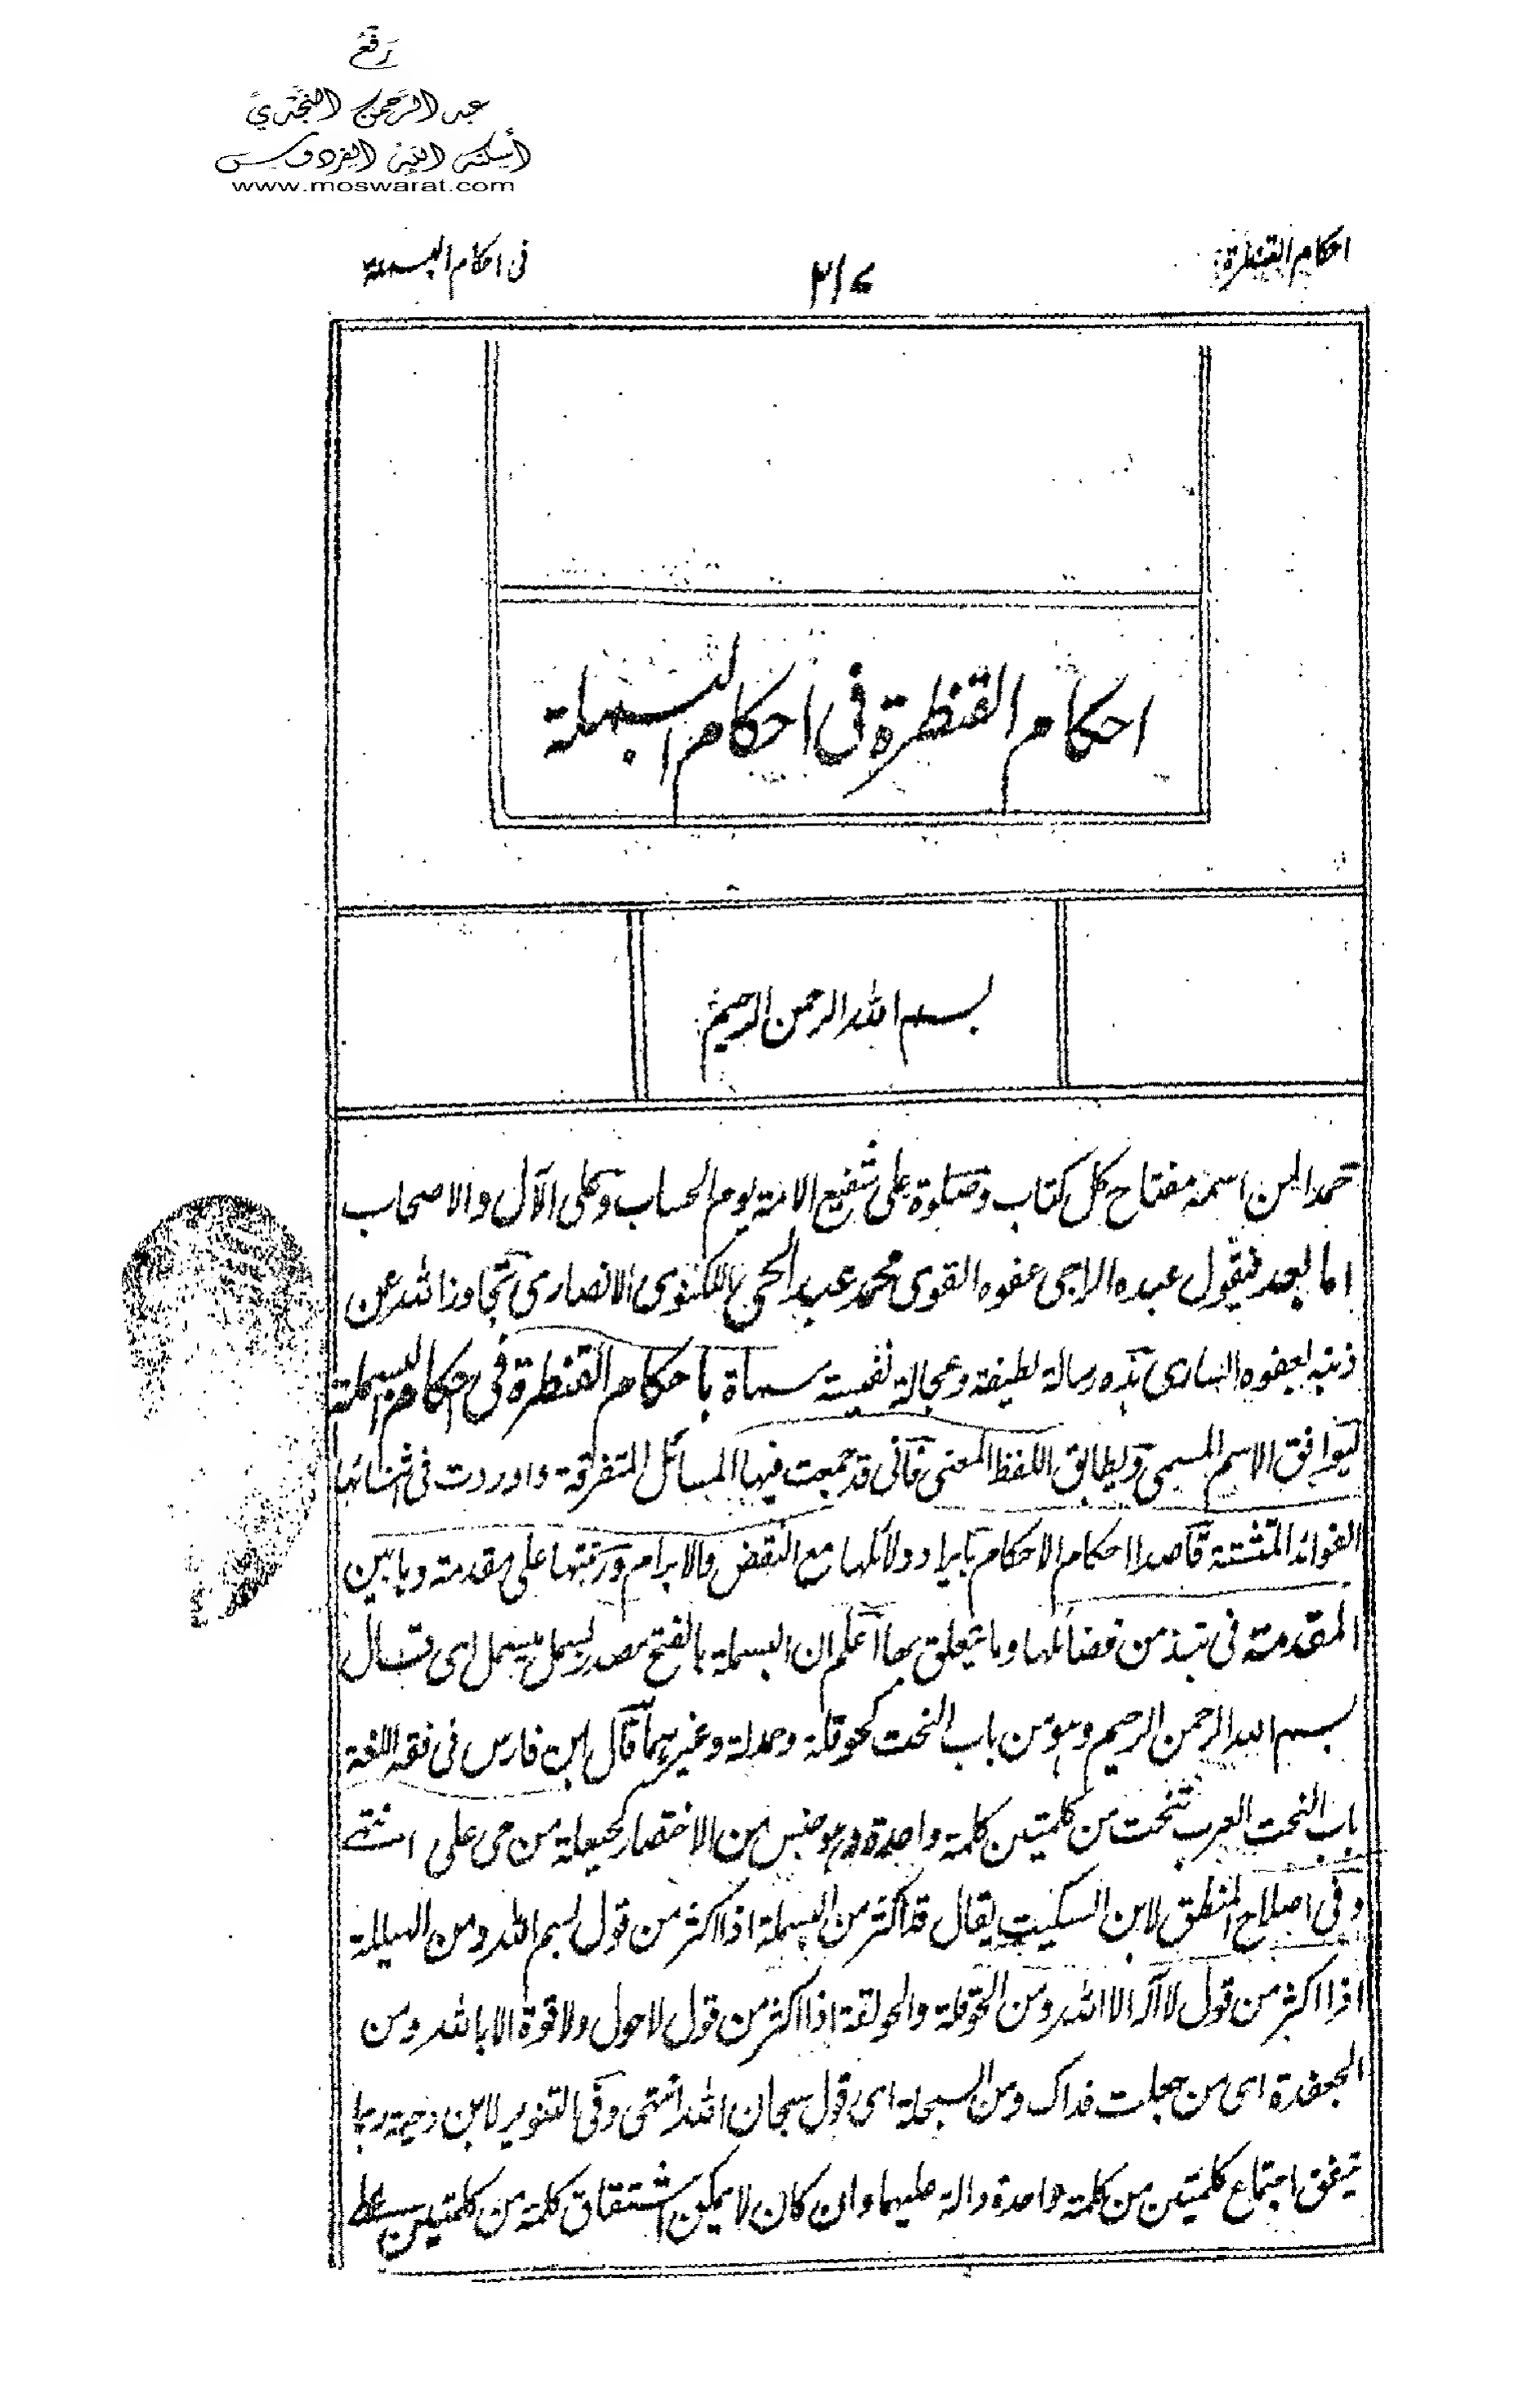 رفع
عبد الرحمن النجدي
أسكنه الله الفردوس
www.moswarat.com
احكام القنطرة
٢١٤
فى احكام البسملة
احكام القنطرة فى احكام البسملة
بسم الله الرحمن الرحيم
حمدا لمن اسمه مفتاح كل كتاب وصلوة على شفيع الامة يوم الحساب وعلى الآل والاصحاب
اما بعد فيقول عبده الراجى عفوه القوى محمد عبد الحى اللكنوى الانصارى تجاوز الله عن
ذنبه بعفوه السارى هذه رسالة لطيفة وعجالة نفيسة مسماة باحكام القنطرة فى احكام البسملة
ليوافق الاسم المسمى ويطابق اللفظ المعنى فانى قد جمعت فيها المسائل المتفرقة واوردت فى اثنائها
الفوائد المتشتتة قاصدا احكام الاحكام بايراد دلائلها مع النقض والابرام ورتبتها على مقدمة وبابين
المقدمة فى نبذ من فضائلها وما يتعلق بها اعلم ان البسملة بالفتح مصدر بسمل يبسمل اى قال
بسم الله الرحمن الرحيم وهو من باب النحت كحوقلة وحمدلة وغيرهما قال ابن فارس فى فقه اللغة
باب النحت العرب تنحت من كلمتين كلمة واحدة وهو جنس من الاختصار كحيعلة من حى على انتهى
وفى اصلاح المنطق لابن السكيت يقال قد اكثر من البسملة اذا اكثر من قول بسم الله ومن الهيللة
اذا اكثر من قول لا اله الا الله ومن الحوقلة والحولقة اذا اكثر من قول لا حول ولا قوة الا بالله ومن
الجعفدة اى من جعلت فداك ومن السبحلة اى قول سبحان الله انتهى وفى التنوير لابن دحية ربما
يتفق اجتماع كلمتين من كلمة واحدة دالة عليهما وان كان لا يمكن اشتقاق كلمة من كلمتين على